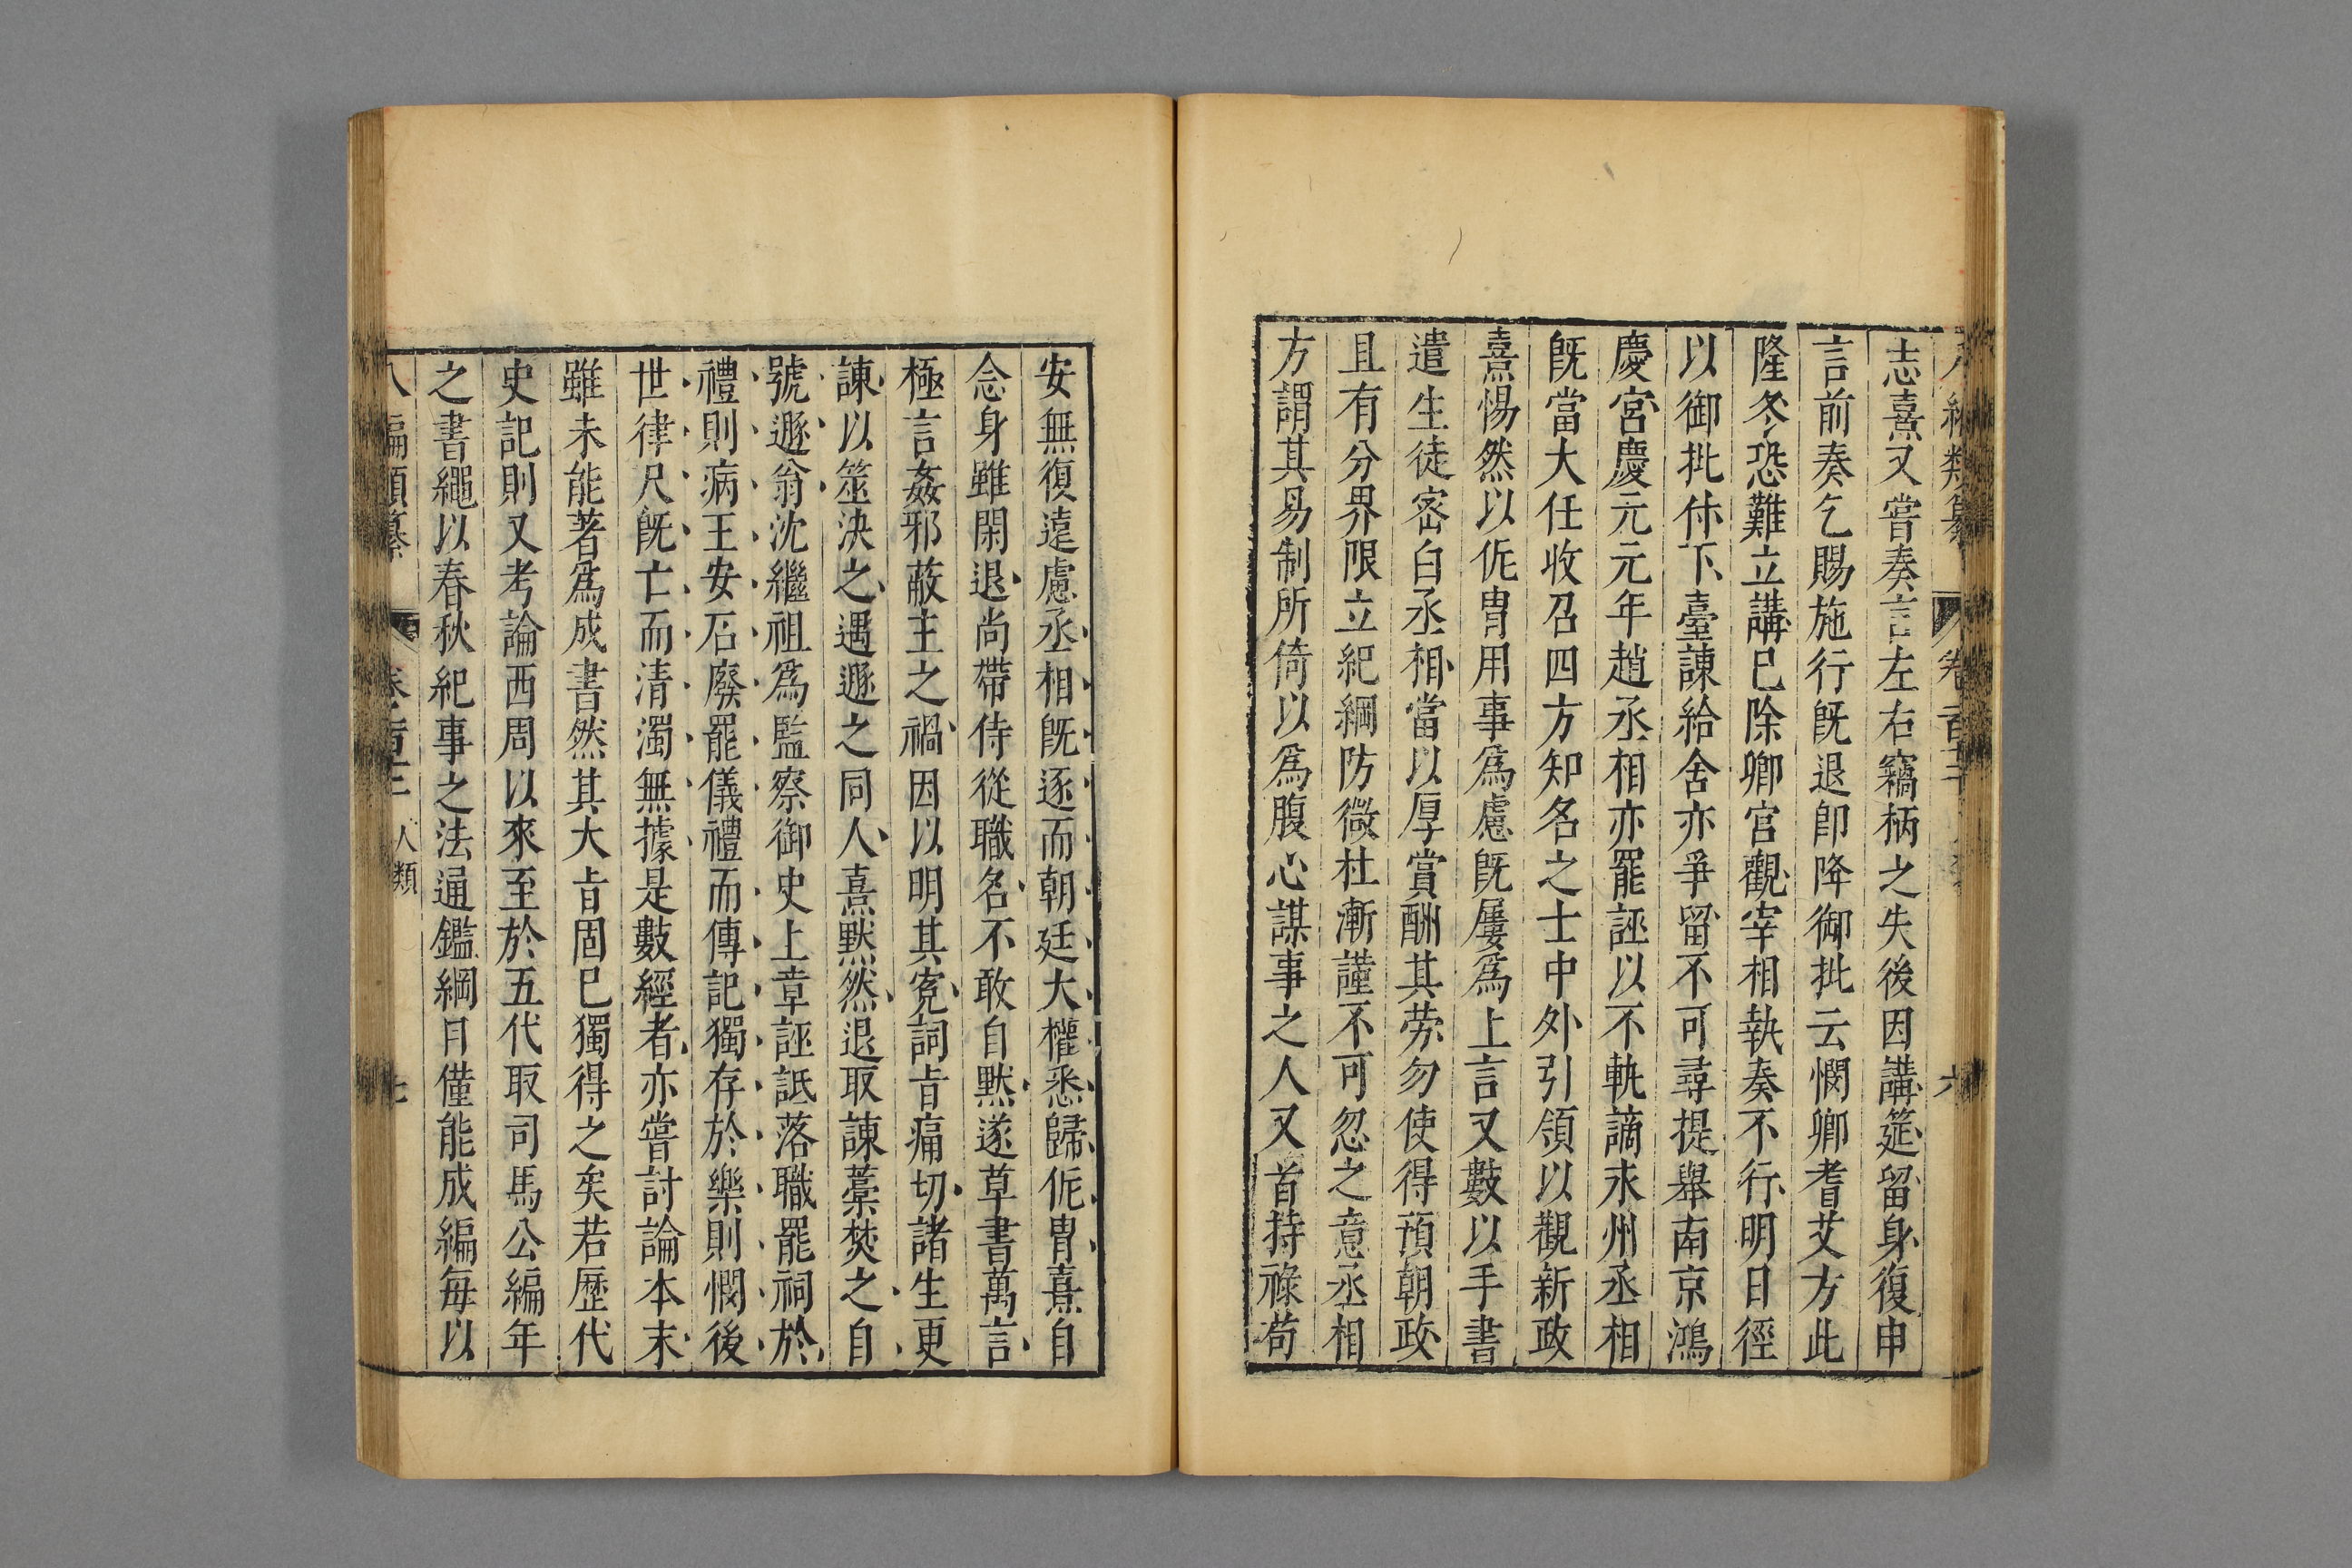 志熹又嘗奏言左右竊柄之失後因講筵留身復申
言前奏乞賜施行旣退卽降御批云憫卿耆艾方此
隆冬恐難立講巳除卿宮觀宰相執奏不行明日徑
以御批付下臺諫給舍亦爭留不可尋提舉南京鴻
慶宮慶元元年趙丞相亦罷誣以不軌謫永州丞相
旣當大任收召四方知名之士中外引領以觀新政
熹惕然以侂胄用事爲慮旣屢爲上言又數以手書
遣生徒密白丞相當以厚賞酬其勞勿使得預朝政
且有分界限立紀綱防微杜漸謹不可忽之意丞相
方謂其易制所倚以爲腹心謀事之人又首持祿苟
安無復遠慮丞相旣逐而朝廷大權悉歸侂胄熹自
念身雖閑退尚帶侍從職名不敢自默遂草書萬言
極言姦邪蔽主之禍因以明其寃詞㫖痛切諸生更
諫以筮決之遇遯之同人熹默然退取諫藁焚之自
號遯翁沈繼祖爲監察御史上章誣詆落職罷祠於
禮則病王安石廢罷儀禮而傳記獨存於樂則憫後
世律尺旣亡而清濁無據是數經者亦嘗討論本末
雖未能著爲成書然其大㫖固巳獨得之矣若歷代
史記則又考論西周以來至於五代取司馬公編年
之書繩以春秋紀事之法通鑑綱目僅能成編每以
人類